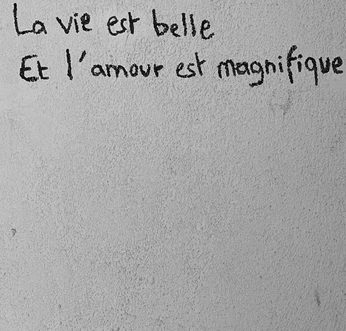 La vie est belle
Et l'amour est magnifique